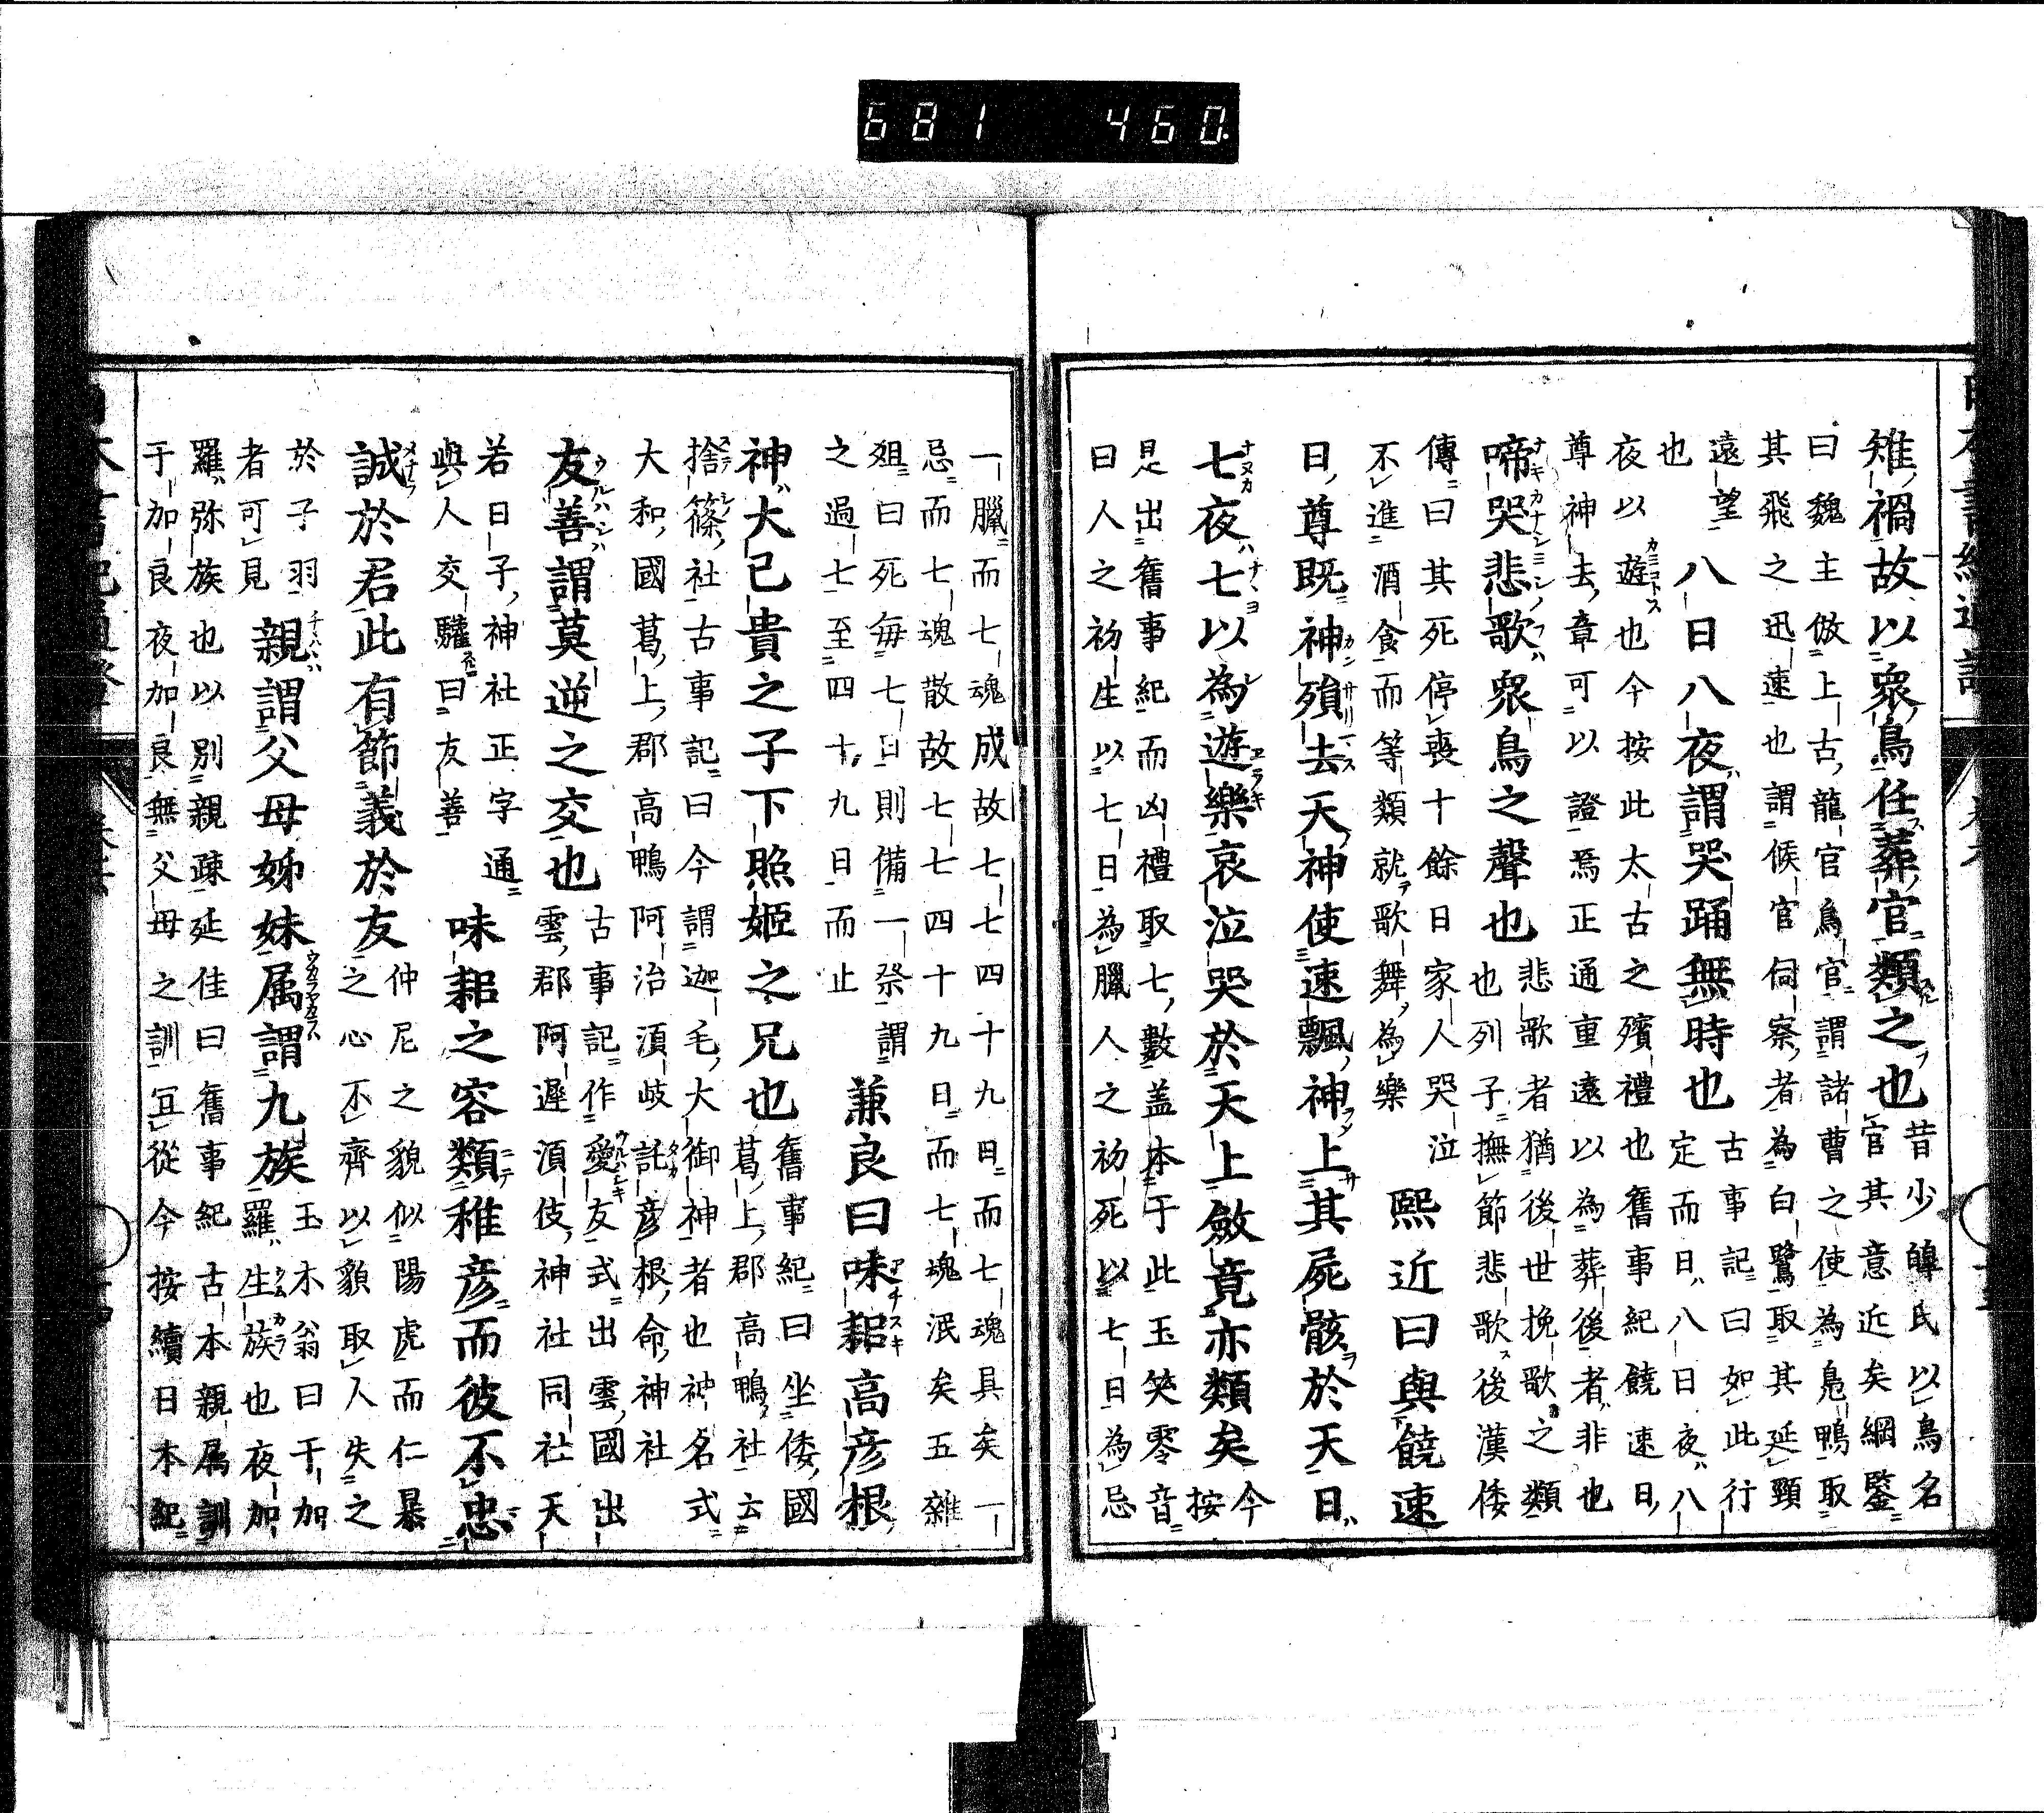 雉禍故以衆鳥任葬官類之也
昔少皥氏以鳥名
官其意近矣綱鑒
曰魏主倣上古龍官鳥官謂諸曹之使為鳧鴨取
其飛之迅速也謂候官伺察者為白鷺取其延頸
遠望
也
八日八夜謂哭踊無時也
古事記曰如此行
定而日八日夜八
夜以遊也今按此太古之殯禮也舊事紀饒速日
尊神去章可以證焉正通重遠以為葬後者非也
啼哭悲歌衆鳥之聲也
悲歌者猶後世挽歌之類
也列子撫節悲歌後漢倭
傳曰其死停喪十餘日家人哭泣
不進酒食而等類就歌舞為樂
熙近曰與饒速
日尊既神殞去天神使速飄神上其屍骸於天日
七夜七以為遊樂哀泣哭於天上斂竟亦類矣
今
按
是出舊事紀而凶禮取七數盖本于此玉笑零音
曰人之初生以七日為臘人之初死以七日為忌
一臘而七魂成故七七四十九日而七魂具矣一
忌而七魂散故七七四十九日而七魂泯矣五雜
爼曰死毎七日則備一祭謂
之過七至四十九日而止
兼良曰味耜高彦根
神大己貴之子下照姬之兄也
舊事紀曰坐倭國
葛上郡高鴨社云
捨篠社古事記曰今謂迦毛大御神者也神名式
大和國葛上郡高鴨阿治湏岐託彦根命神社
友善謂莫逆之交也
古事記作愛友式出雲國出
雲郡阿遲湏伎神社同社天
若日子神社正字通
與人交驩曰友善
味耜之容類稚彦而彼不忠
誠於君此有節義於友
仲尼之貌似陽虎而仁暴
之心不齊以貌取人失之
於子羽
者可見
親謂父母姊妹属謂九族
玉木翁曰于加
羅生族也夜加
羅弥族也以別親疎延佳曰舊事紀古本親属訓
于加良夜加良無父母之訓冝從今按續日本紀
681 460